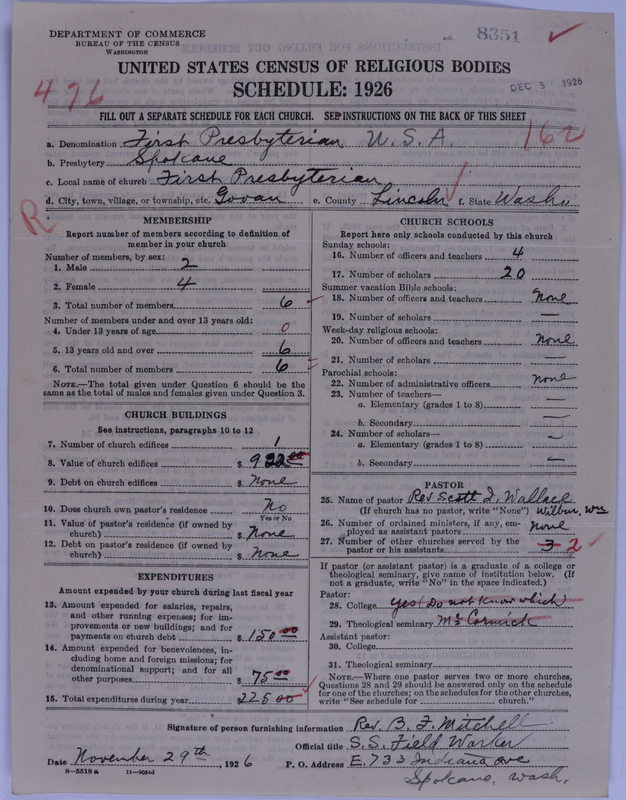 DEPARTMENT OF COMMERCE
BUREAU OF THE CENSUS
WASHINGTON
8351
UNITED STATES CENSUS OF RELIGIOUS BODIES
SCHEDULE: 1926
DEC 3 1926
476
FILL OUT A SEPARATE SCHEDULE FOR EACH CHURCH. SEE INSTRUCTIONS ON THE BACK OF THIS SHEET
162
a. Denomination First Presbyterian U.S.A.
b. Presbytery Spokane
c. Local name of church First Presbyterian
d. City, town, village, or township, etc. Govan e. County Lincoln f. State Wash.
R
MEMBERSHIP
Report number of members according to definition of
member in your church
Number of members, by sex:
1. Male 2
2. Female 4
3. Total number of members 6
Number of members under and over 13 years old:
4. Under 13 years of age 0
5. 13 years old and over 6
6. Total number of members 6
NOTE.—The total given under Question 6 should be the
same as the total of males and females given under Question 3.
CHURCH BUILDINGS
See instructions, paragraphs 10 to 12
7. Number of church edifices 1
8. Value of church edifices $ 922 00
9. Debt on church edifices $ None
10. Does church own pastor's residence No
Yes or No
11. Value of pastor's residence (if owned by
church) $ None
12. Debt on pastor's residence (if owned by
church) $ None
EXPENDITURES
Amount expended by your church during last fiscal year
13. Amount expended for salaries, repairs,
and other running expenses; for im-
provements or new buildings; and for
payments on church debt $ 150 00
14. Amount expended for benevolences, in-
cluding home and foreign missions; for
denominational support; and for all
other purposes $ 75 00
15. Total expenditures during year $ 225 00
CHURCH SCHOOLS
Report here only schools conducted by this church
Sunday schools:
16. Number of officers and teachers 4
17. Number of scholars 20
Summer vacation Bible schools:
18. Number of officers and teachers None
19. Number of scholars —
Week-day religious schools:
20. Number of officers and teachers None
21. Number of scholars —
Parochial schools:
22. Number of administrative officers None
23. Number of teachers—
a. Elementary (grades 1 to 8) —
b. Secondary —
24. Number of scholars—
a. Elementary (grades 1 to 8) —
b. Secondary —
PASTOR
25. Name of pastor Rev Scott I. Wallace
(If church has no pastor, write "None") Wilbur, Wn
26. Number of ordained ministers, if any, em-
ployed as assistant pastors None
27. Number of other churches served by the
pastor or his assistants 3 2
If pastor (or assistant pastor) is a graduate of a college or
theological seminary, give name of institution below. (If
not a graduate, write "No" in the space indicated.)
Pastor:
28. College yes (Do not know which)
29. Theological seminary McCormick
Assistant pastor:
30. College
31. Theological seminary
NOTE.—Where one pastor serves two or more churches,
Questions 28 and 29 should be answered only on the schedule
for one of the churches; on the schedules for the other churches,
write "See schedule for church."
Signature of person furnishing information Rev. B. F. Mitchell
Official title S.S. Field Worker
Date November 29th, 1926 P. O. Address E. 733 Indiana Ave
8—5518a
Spokane, Wash.